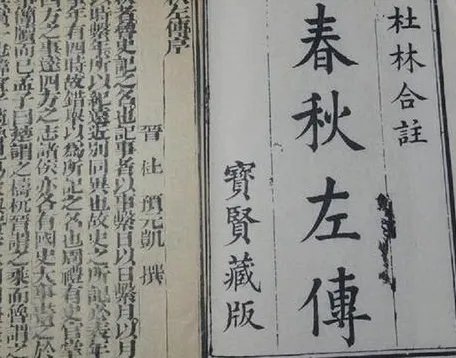 杜林合註
春秋左傳
寶賢藏版
左傳序
晉 杜 預元凱 撰
者魯史記之名也記事者以事繫日以日繫月以月
時繫年所以紀遠近別同異也故史之所記必表年
事年有四時故錯舉以為所記之名也周禮有史官掌
四方之事達四方之志諸侯亦各有國史大事書之於
簡牘而已孟子曰楚謂之檮杌晉謂之乘而魯謂